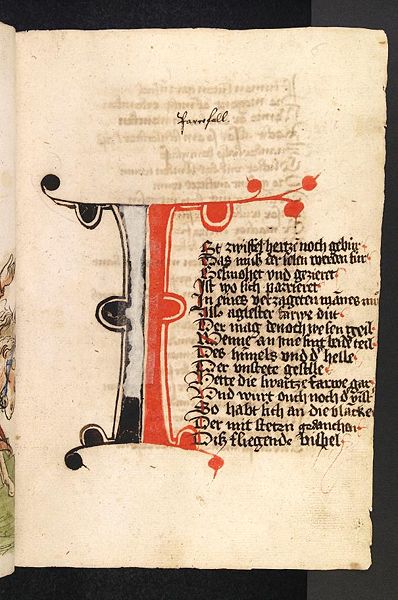 Parcifall
I
St zwiffel hertze noch gebur
Das muß der selen werden sur
Gesmohet vnd gezieret
Ist wo sich parrieret
In eines verzageten mānes mut
Als agelster farwe dut
Der mag denoch wesen geil
Wenne an yme sint beide teil
Des himels vnd d' helle
Der vnstete geselle
Hette die swartze farwe gar
Vnd wurt ouch noch d'
So habt sich an die blācke
Der mit steten gedancken
Diß fliegende bispel